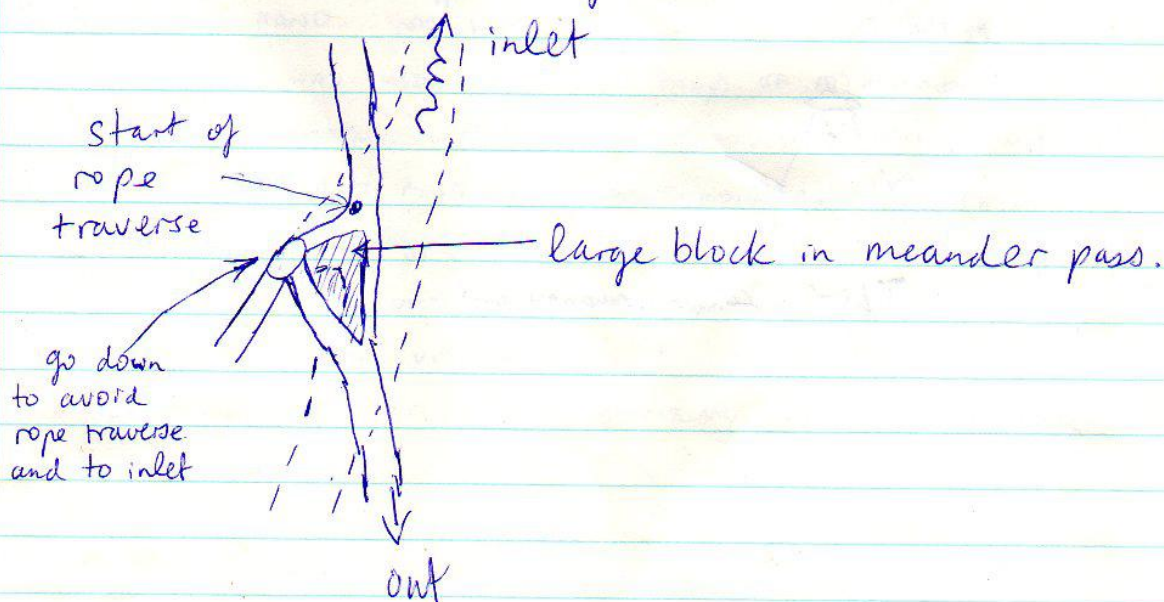 inlet
start of
rope
traverse
large block in meander pass.
go down
to avoid
rope traverse
and to inlet
out